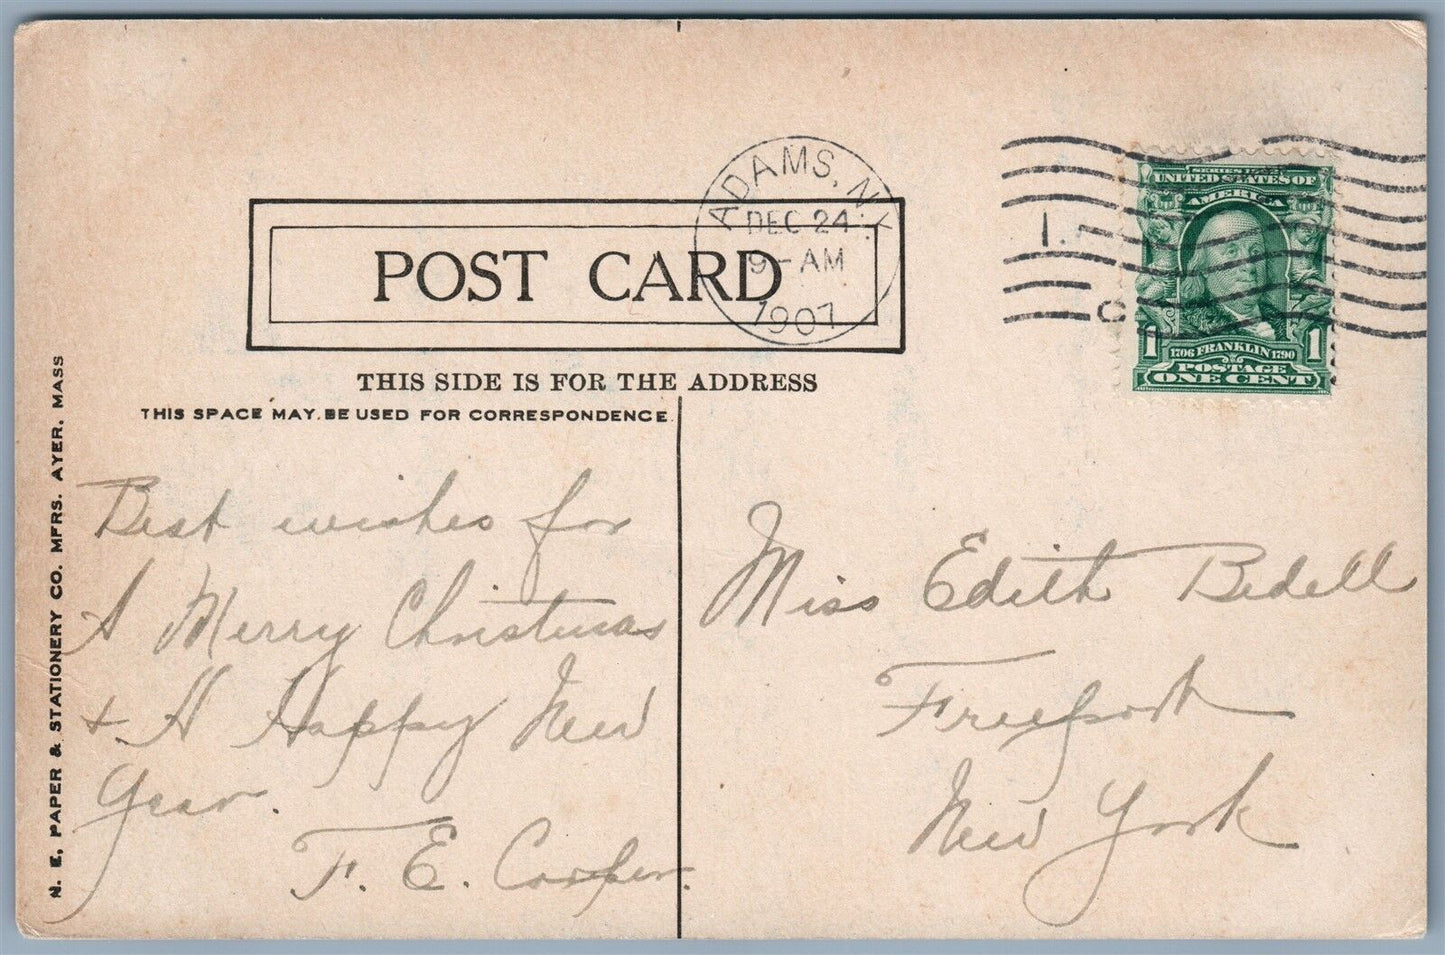 ADAMS, N.Y.
DEC 24
9-AM
1907
SERIES 1902
UNITED STATES OF
AMERICA
1 1706 FRANKLIN 1790 1
POSTAGE
ONE CENT
POST CARD
THIS SIDE IS FOR THE ADDRESS
THIS SPACE MAY BE USED FOR CORRESPONDENCE
N. E, PAPER & STATIONERY CO. MFRS. AYER, MASS
Best wishes for
A Merry Christmas
+ A Happy New
Year.
F. E. Cooper.
Miss Edith Bedell
Freeport
New York